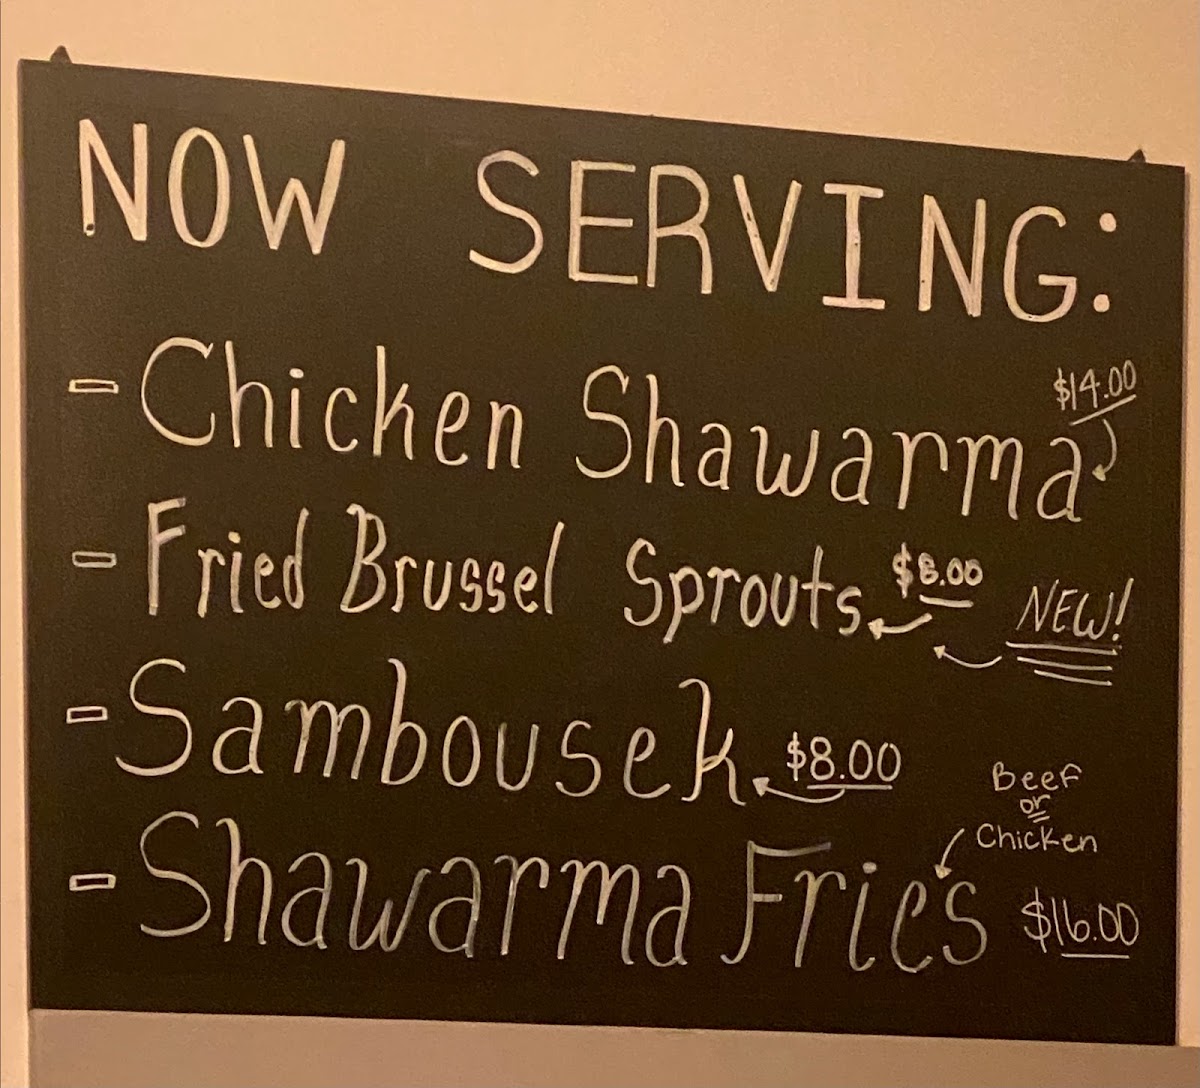 NOW SERVING:
$14.00
- Chicken Shawarma
- Fried Brussel Sprouts $8.00
NEW!
- Sambousek $8.00
Beef
or
Chicken
- Shawarma Fries $16.00